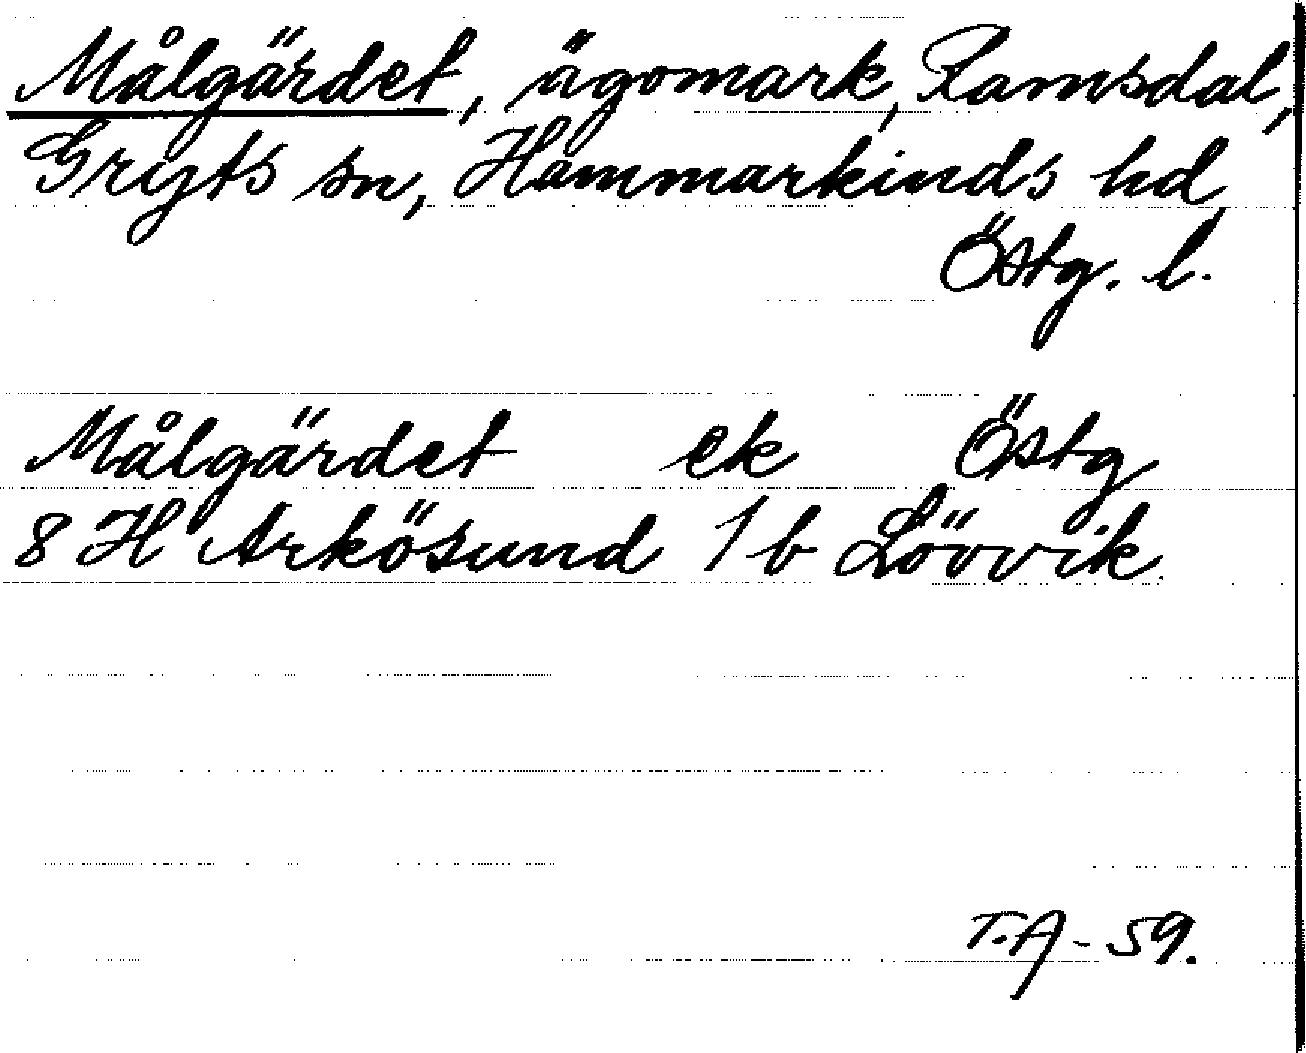 Målgärdet, ägomark, Ramsdal,
Gryts sn, Hammarkinds hd
Östg. l.
Målgärdet ek Östg
8 H Arkösund 1 b Lövvik
T.A - 59.